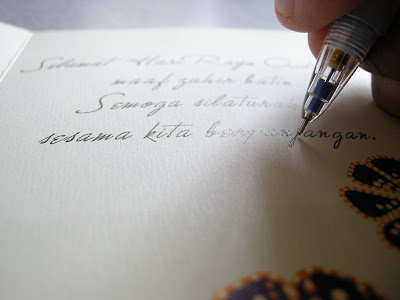 Selamat Hari Raya
maaf zahir batin
Semoga
sesama kita berpanjangan.